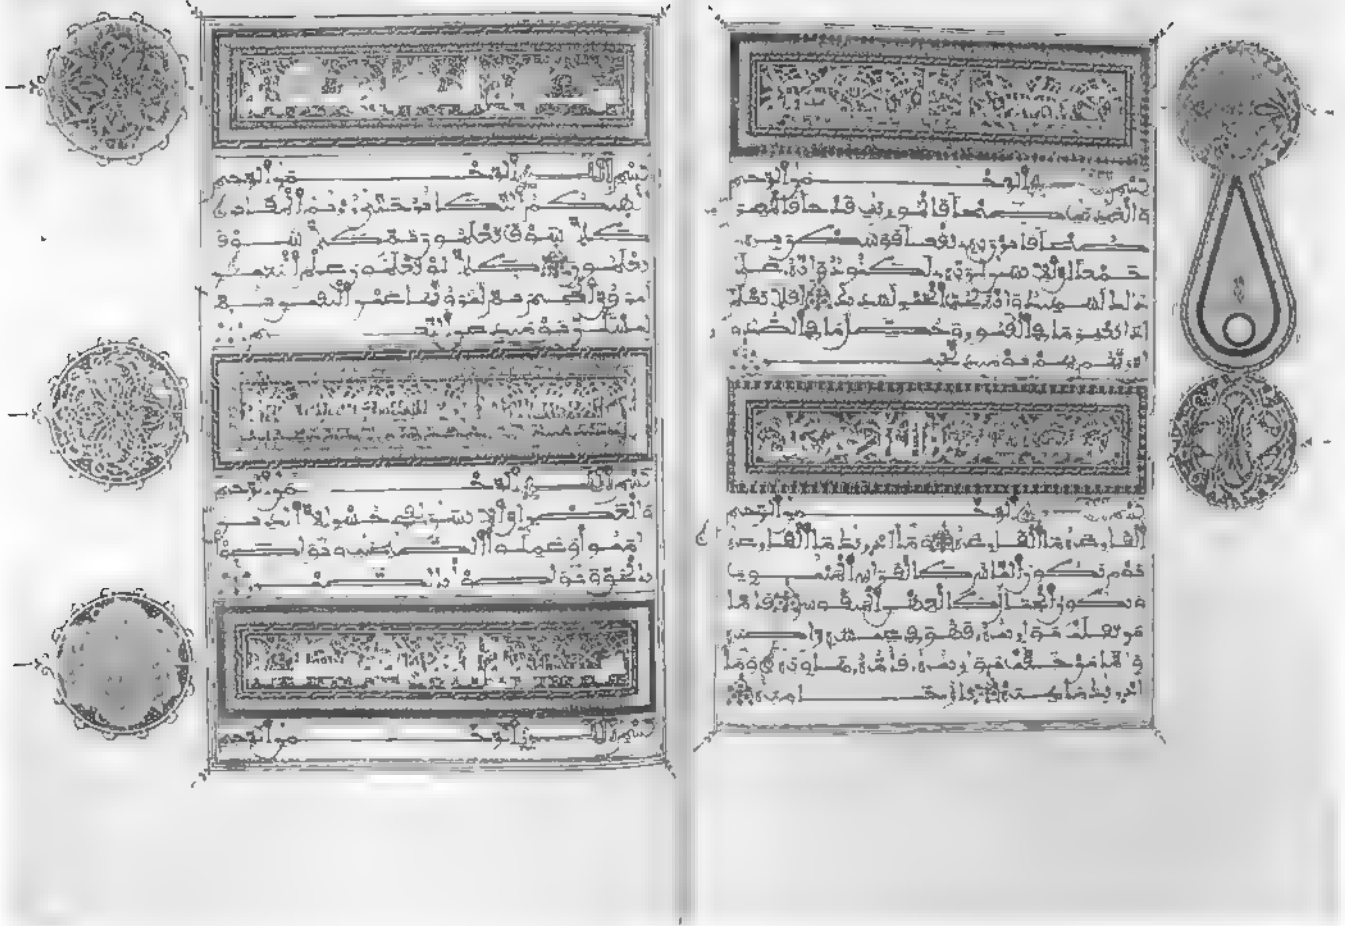 بسم الله الرحمن الرحيم
والعديت ضبحا فالموريت قدحا فالمغير
ت صبحا فأثرن به نقعا فوسطن به
جمعا إن الإنسن لربه لكنود وإنه على
ذلك لشهيد وإنه لحب الخير لشديد أفلا يعلم
إذا بعثر ما في القبور وحصل ما في الصدور
إن ربهم بهم يومئذ لخبير
بسم الله الرحمن الرحيم
القارعة ما القارعة وما أدريك ما القارعة
يوم يكون الناس كالفراش المبثوث
وتكون الجبال كالعهن المنفوش فأما
من ثقلت موزينه فهو في عيشة راضية
وأما من خفت موزينه فأمه هاوية وما
أدريك ما هيه نار حامية
بسم الله الرحمن الرحيم
ألهيكم التكاثر حتى زرتم المقابر
كلا سوف تعلمون ثم كلا سوف
تعلمون كلا لو تعلمون علم اليقين
لترون الجحيم ثم لترونها عين اليقين ثم
لتسئلن يومئذ عن النعيم
بسم الله الرحمن الرحيم
والعصر إن الإنسن لفي خسر إلا الذين
ءامنوا وعملوا الصلحت وتواصوا
بالحق وتواصوا بالصبر
بسم الله الرحمن الرحيم